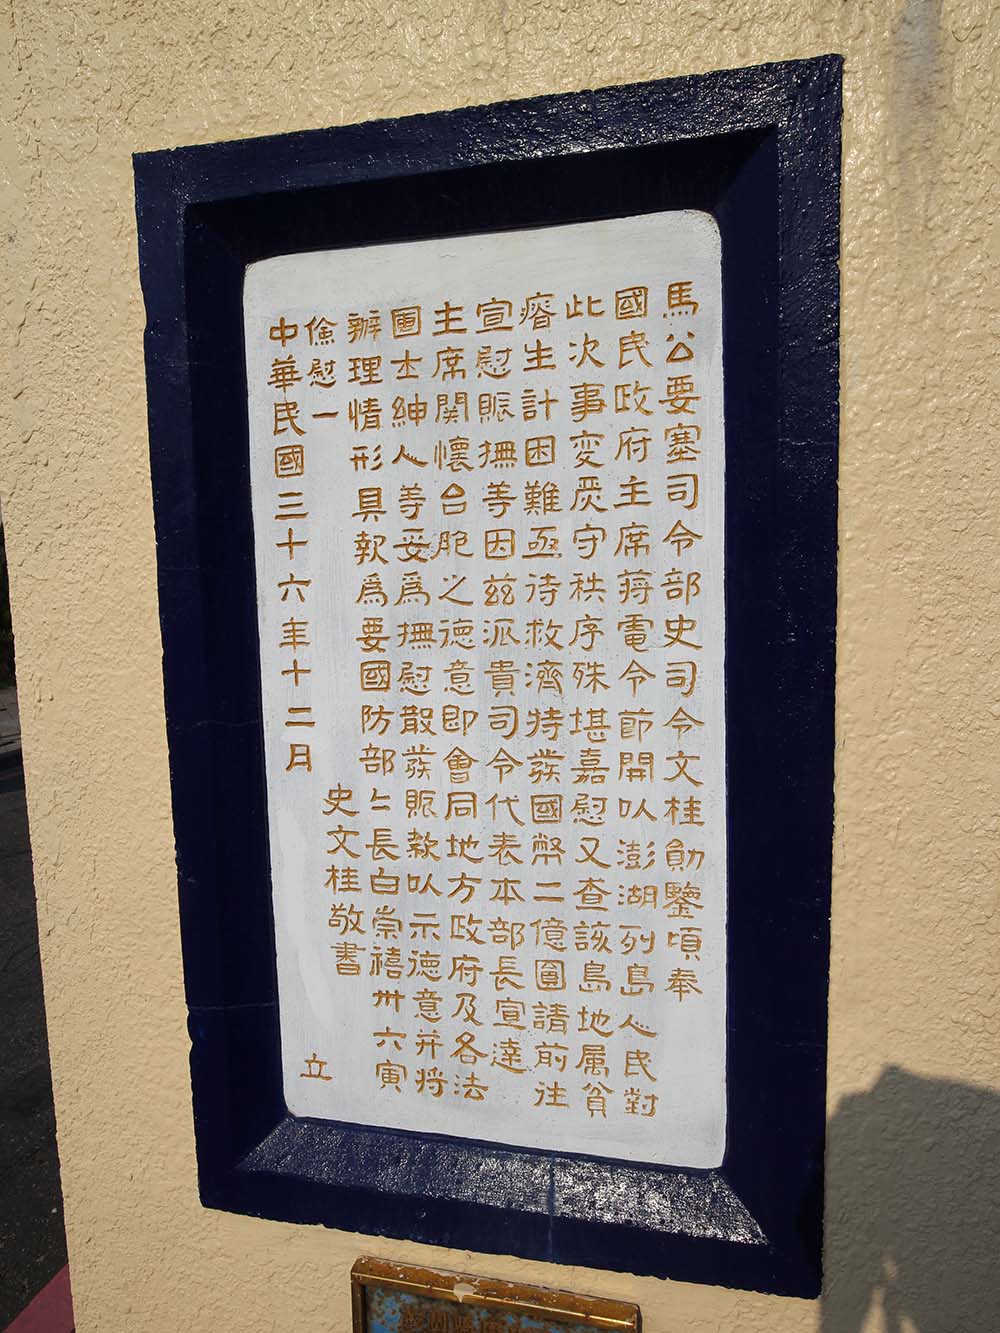 馬公要塞司令部史司令文桂勛鑒頃奉
國民政府主席蔣電令節開以澎湖列島人民對
此次事变灵守秩序殊堪嘉慰又查該島地属貧
瘠生計困難亟待救濟特發國幣二億圓請前往
宣慰賑撫等因兹派貴司令代表本部長宣達
主席関懷台胞之德意即會同地方政府及各法
團士紳人等妥為撫慰散發賑款以示德意并将
辦理情形具報為要國防部部長白崇禧卅六寅
儉慰一
史文桂敬書
中華民國三十六年十二月
立